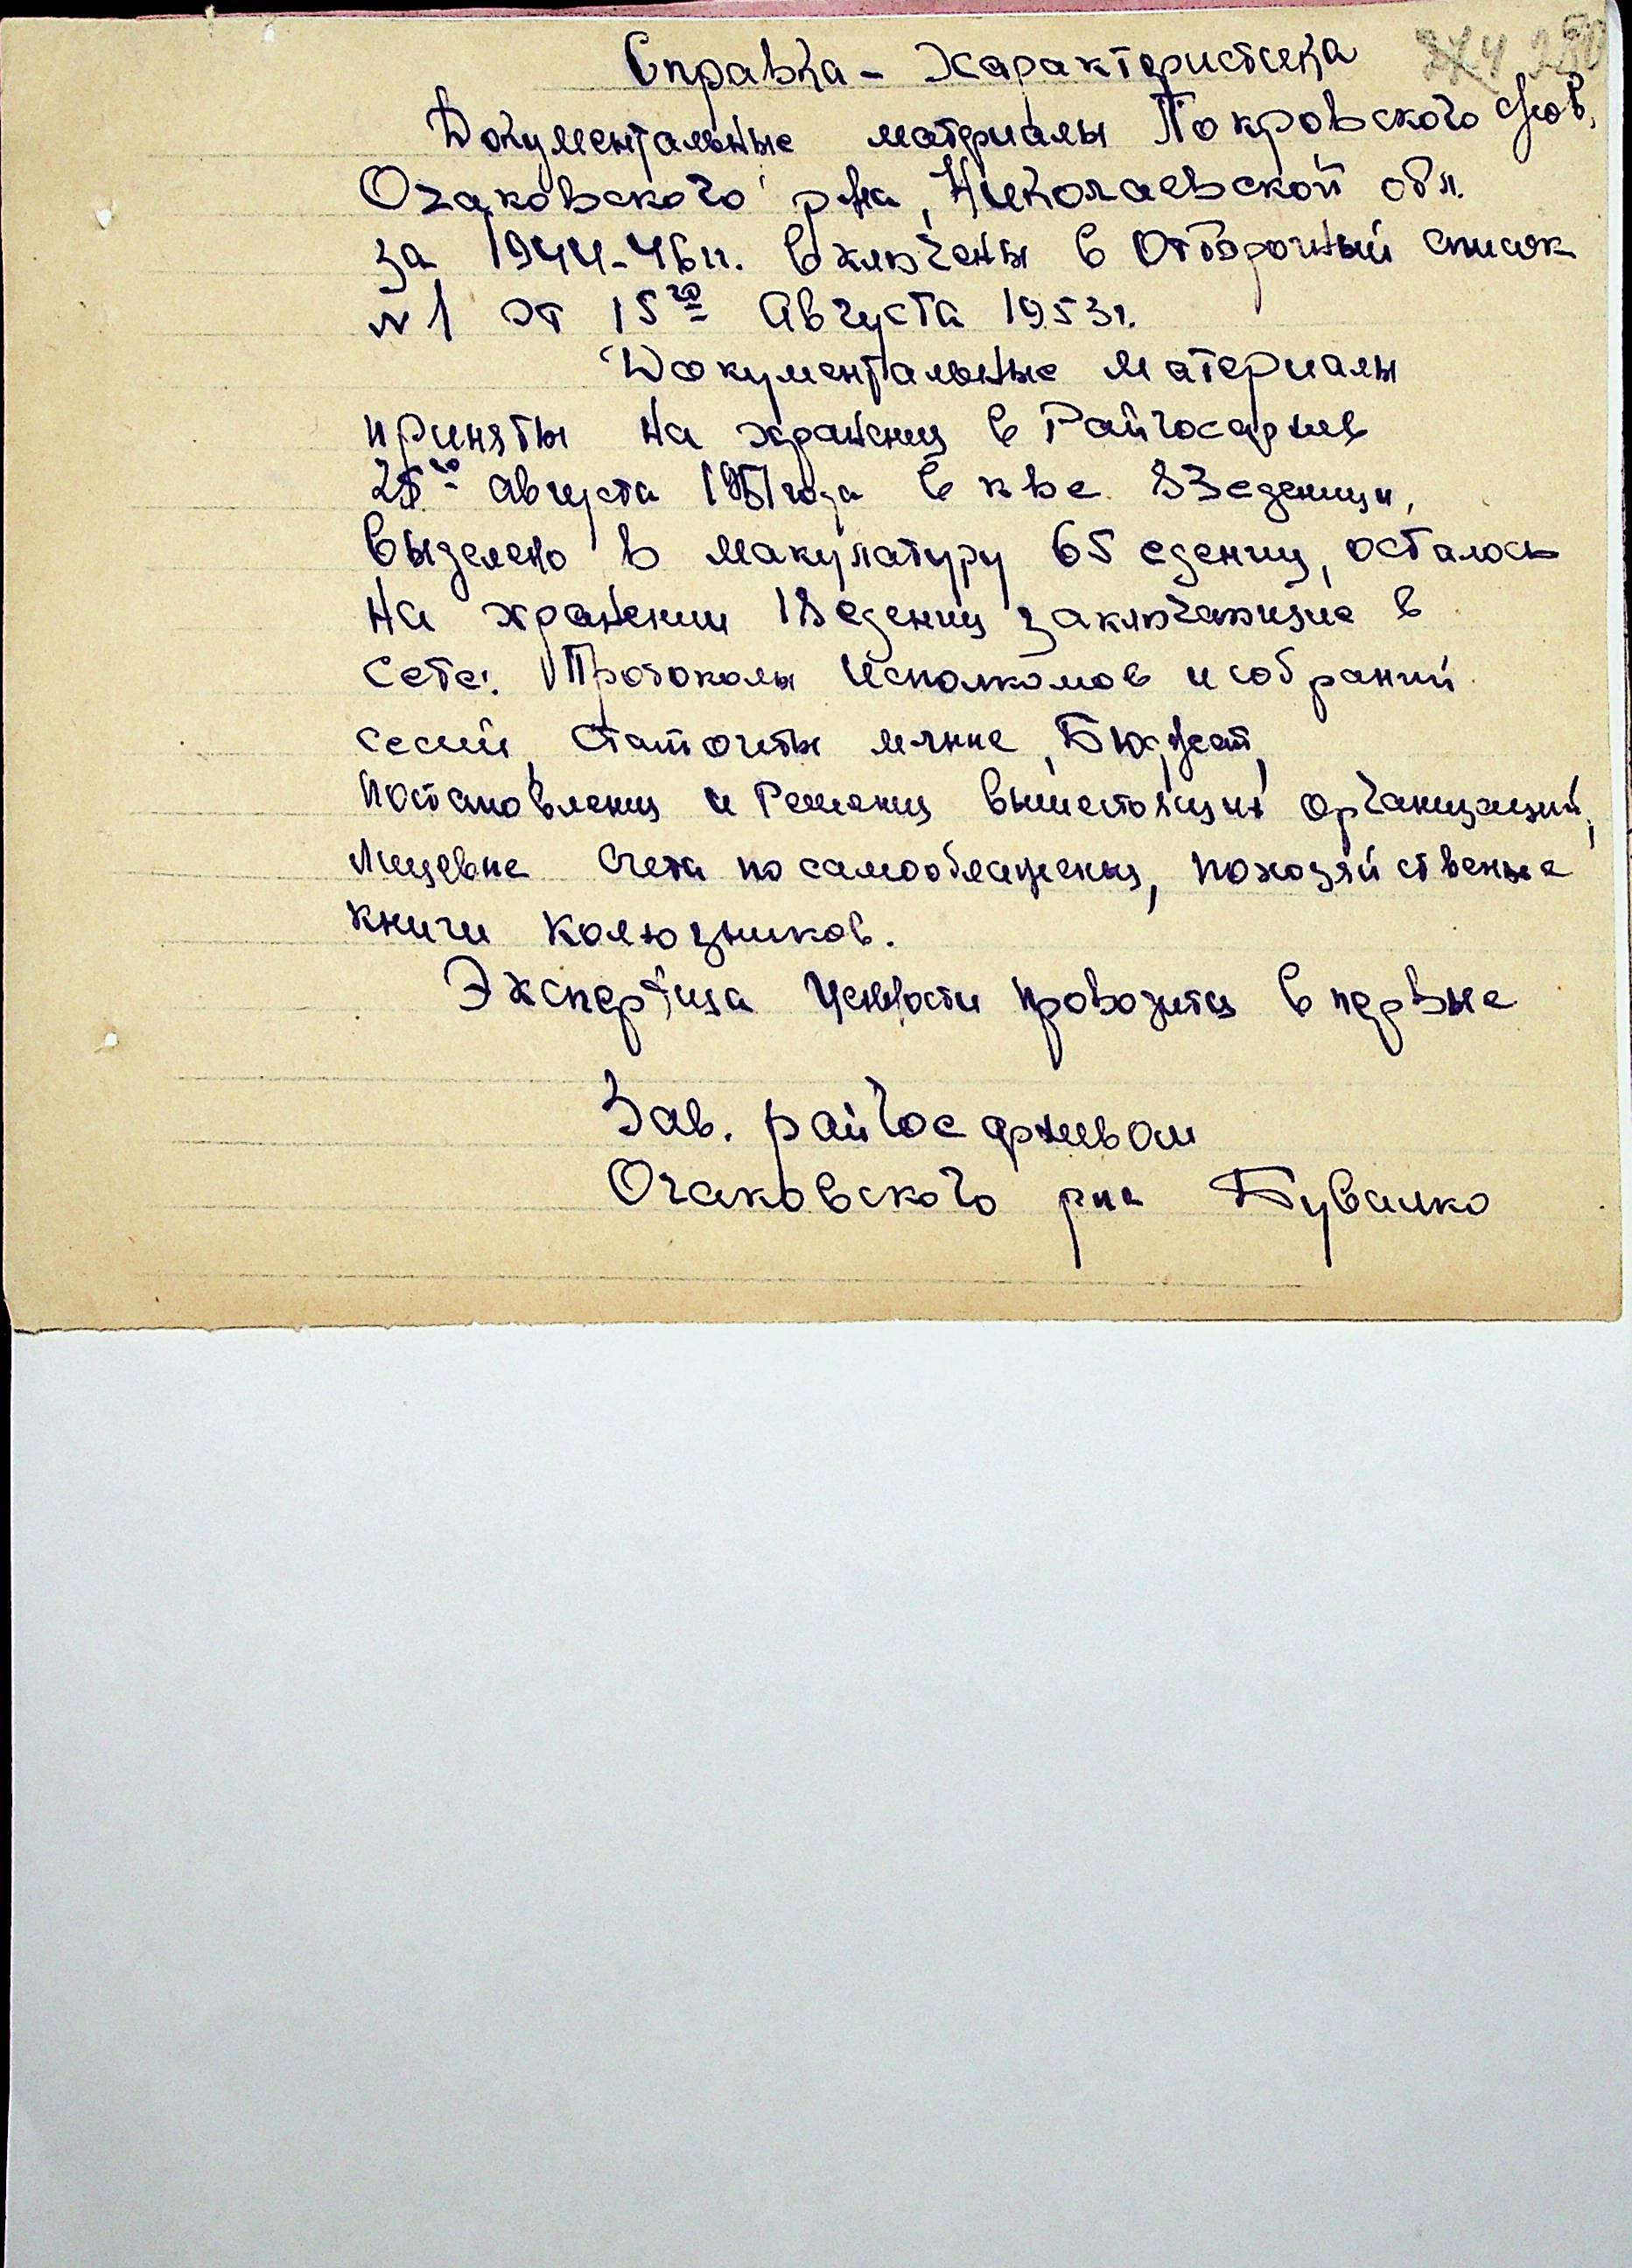 Справка - Характеристика
Документальные материалы Покровского с/сов.
Очаковского р-на, Николаевской обл.
за 1944-46 гг. включены в Отборочный список
№1 от 15го Августа 1953г.
Документальные материалы
приняты на хранения в Райгосархив
25го августа 1951 года в к-ве 83 еденици,
выделено в макулатуру 65 едениц, осталось
на хранении 18 едениц заключающие в
себе: Протоколы Исполкомов и собраний
сесий, статочеты, Бюджет,
Постановления и Решения вышестоящих организаций,
Лицевые счета по самообложения, похозяйственые
книги колхозников.
Экспертиза ценности проводится впервые
Зав. райгосархивом
Очаковского р-на Бувалко